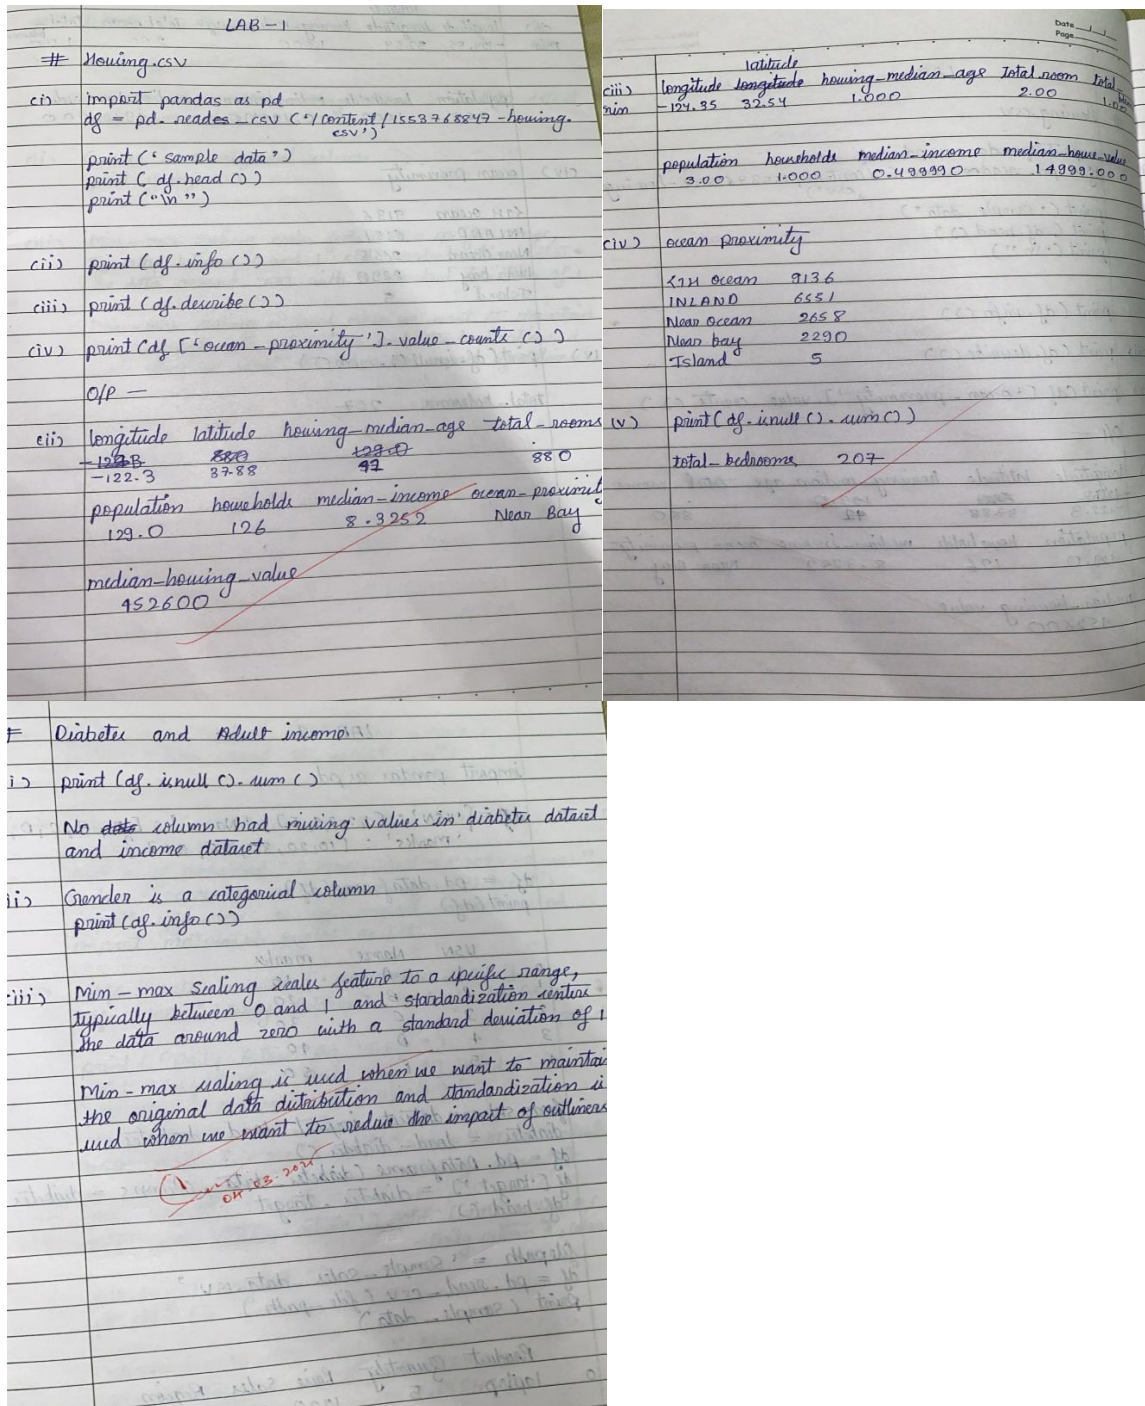 LAB-1
# Housing.csv
(i) import pandas as pd
df = pd. reades_csv ('/content/1553768847-housing.
csv')
print('sample data')
print( df.head())
print("\n")
(ii) print(df.info())
(iii) print(df.describe())
(iv) print(df['ocean-proximity'].value-counts())
O/P —
(ii) longitude latitude housing-median-age total-rooms
-122.3 37.88 41 880
population households median-income ocean-proximity
129.0 126 8.3252 Near Bay
median-housing-value
452600
Date
Page
latitude
(iii) longitude longitude housing-median-age Total room total
min -124.35 32.54 1.000 2.00 1.00
population households median-income median-house-value
3.00 1.000 0.499990 14999.000
(iv) ocean proximity
<1H ocean 9136
INLAND 6551
Near ocean 2658
Near bay 2290
Island 5
(v) print(df.isnull().sum())
total-bedrooms 207
# Diabetes and Adult income
i) print(df.isnull().sum()
No data column had missing values in diabetes dataset
and income dataset
ii) Gender is a categorical column
print(df.info())
iii) Min-max scaling scales feature to a specific range,
typically between 0 and 1 and standardization centers
the data around zero with a standard deviation of 1
Min-max scaling is used when we want to maintai
the original data distribution and standardization is
used when we want to reduce the impact of outliners